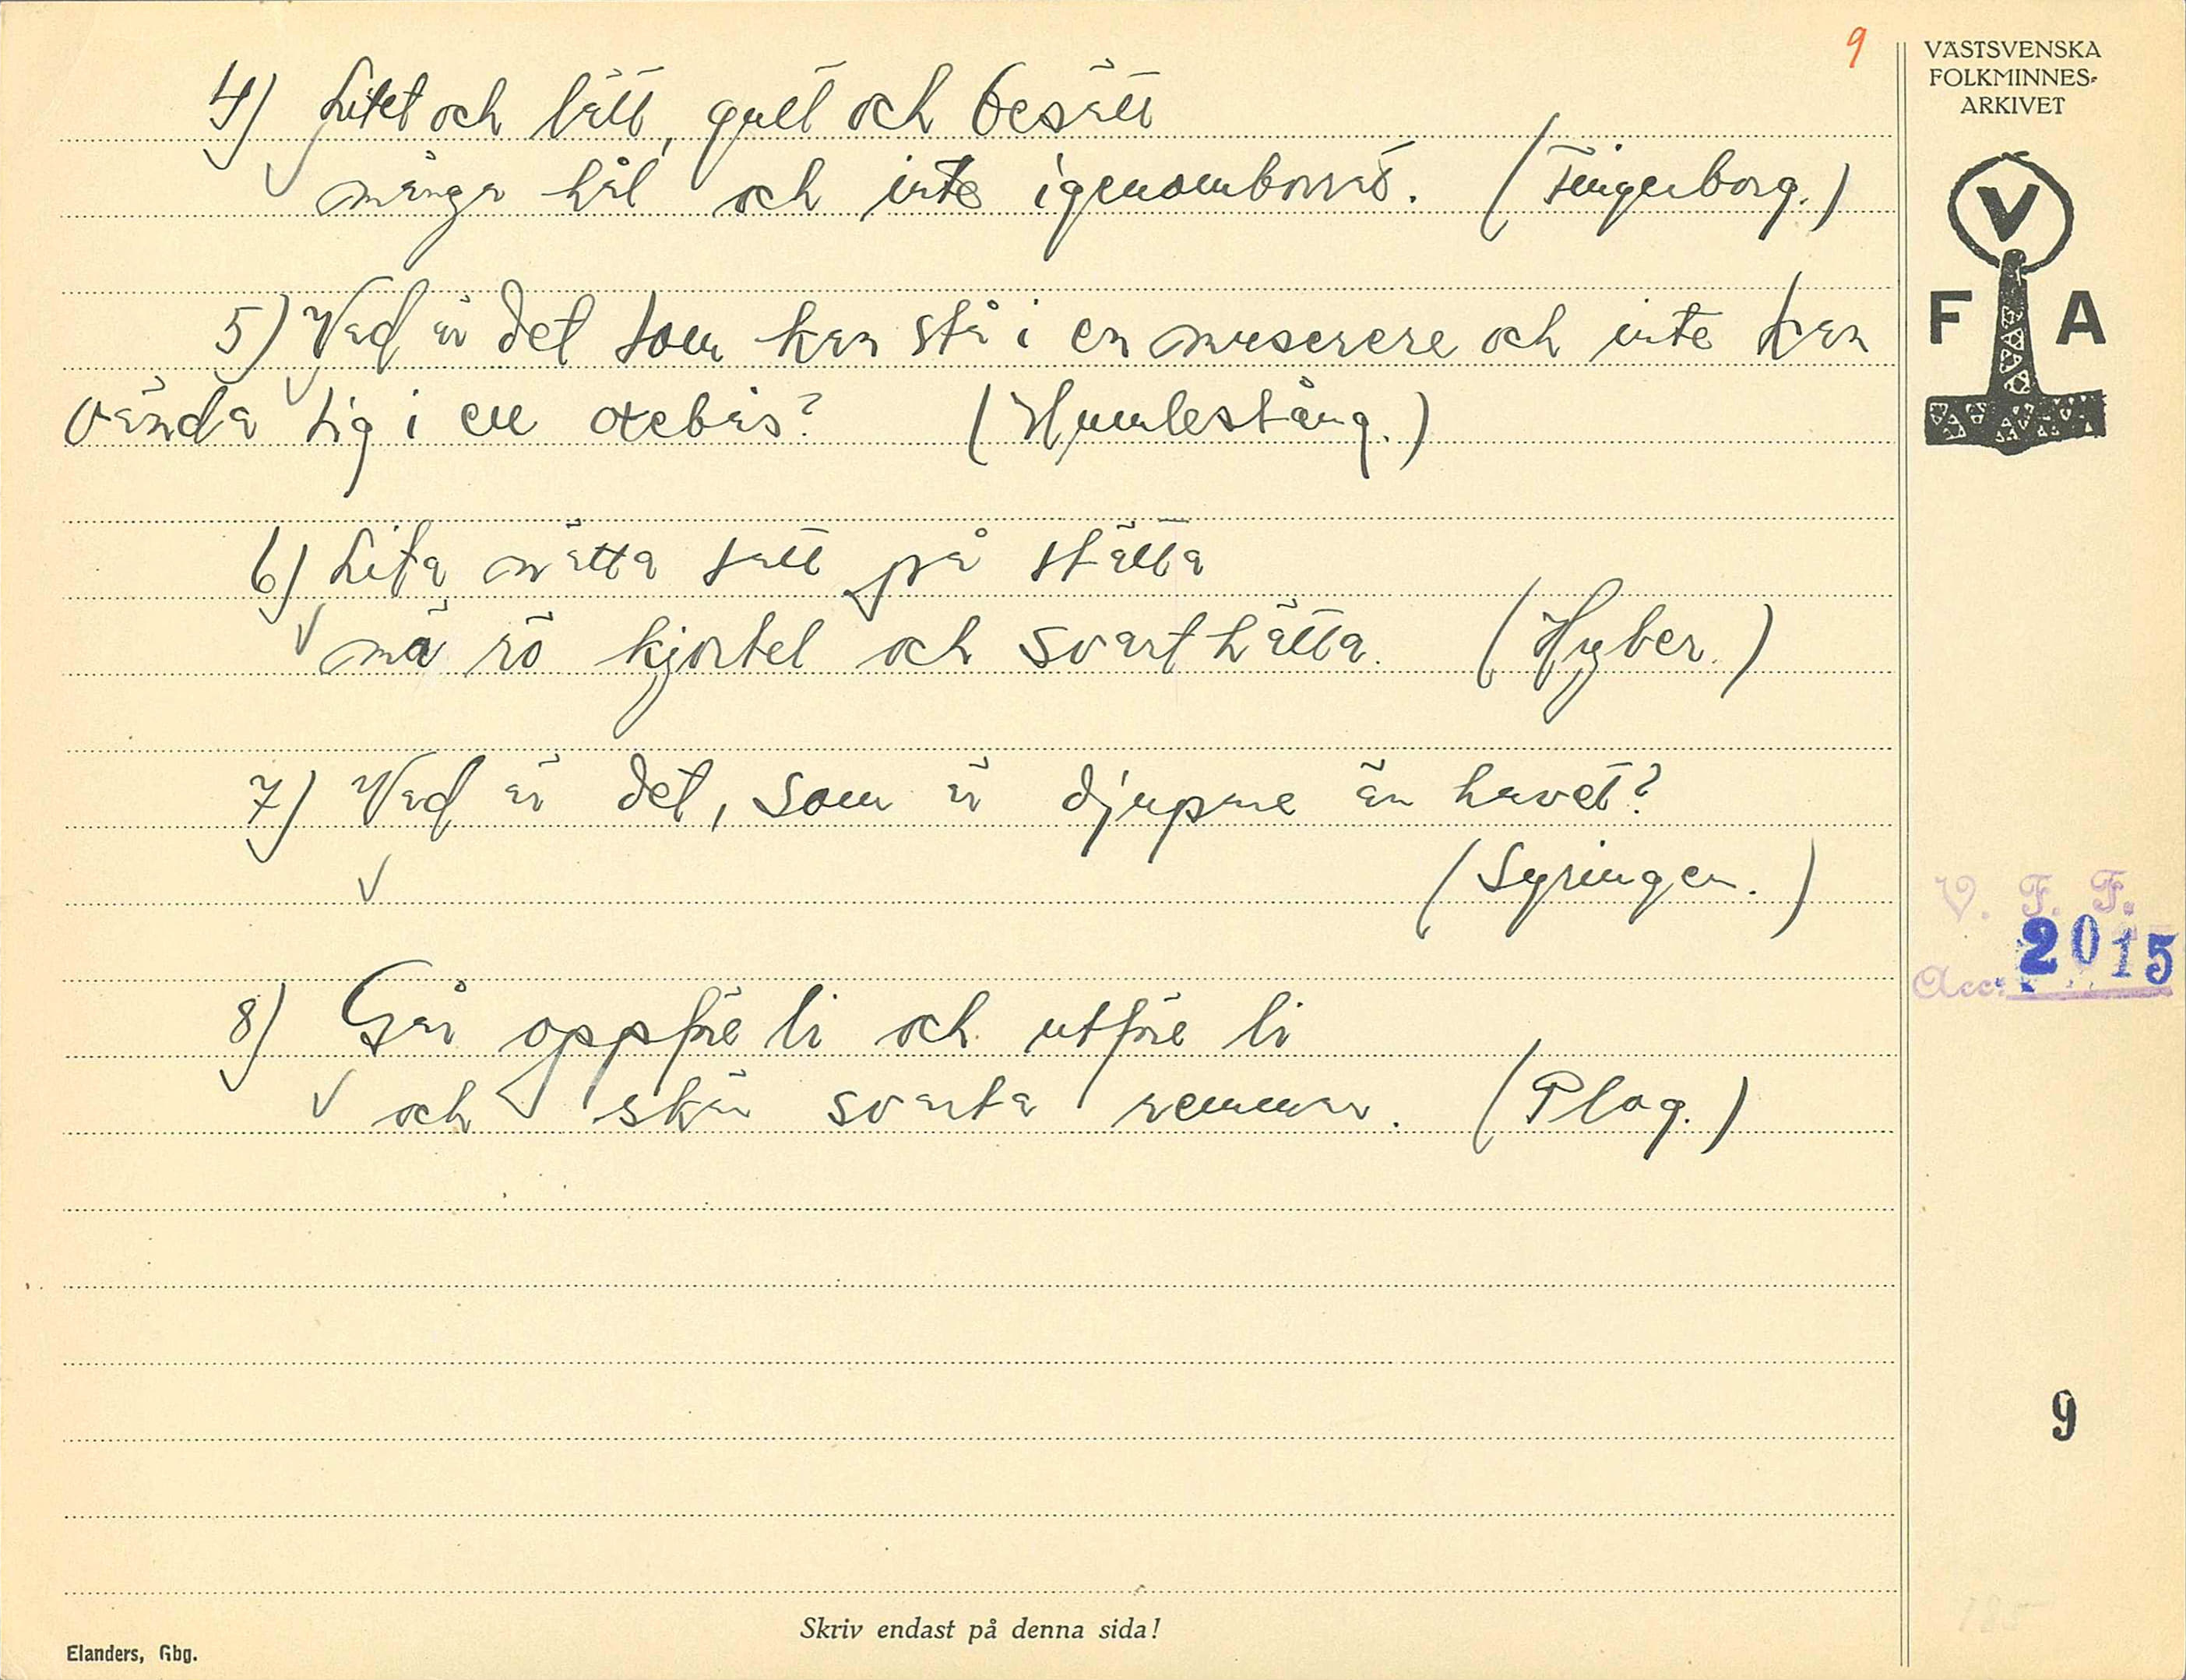 9
VÄSTSVENSKA
FOLKMINNES-
ARKIVET
V
F A
4) Litet och lätt, gult och besätt
många hål och inte igenomborrat. (Fingerborg.)
5) Vad är det som kan stå i en och inte kan
vända sig i en oxebås? (Humlestång.)
6) Lita nätta satt på stätta
mä rö kjortel och svart hätta. (Hyber.)
7) Vad är det, som är djupare än havet?
(Syringen.)
8) Går oppför li och utför li
och skär svarta remmar. (Plog.)
V. F. F.
Acc. 2015
9
Skriv endast på denna sida!
Elanders, Gbg.